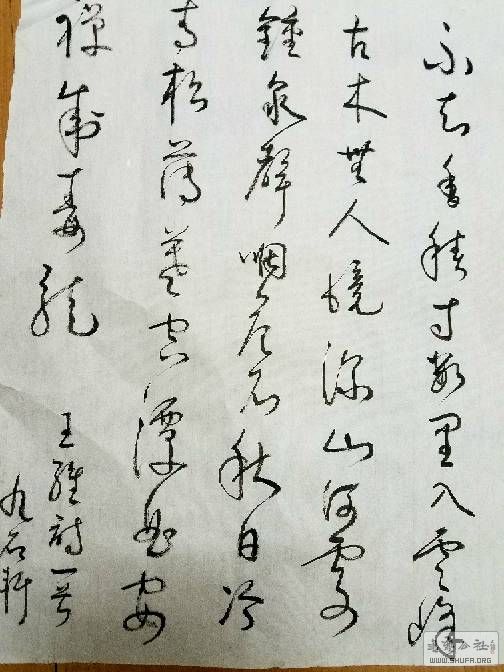 不知香積寺數里入雲峰
古木無人境深山何處
鐘泉聲咽危石秋日冷
青松薄暮空潭曲安
禪制毒龍
王維詩一首
九石軒
WWW.SHUFA.ORG